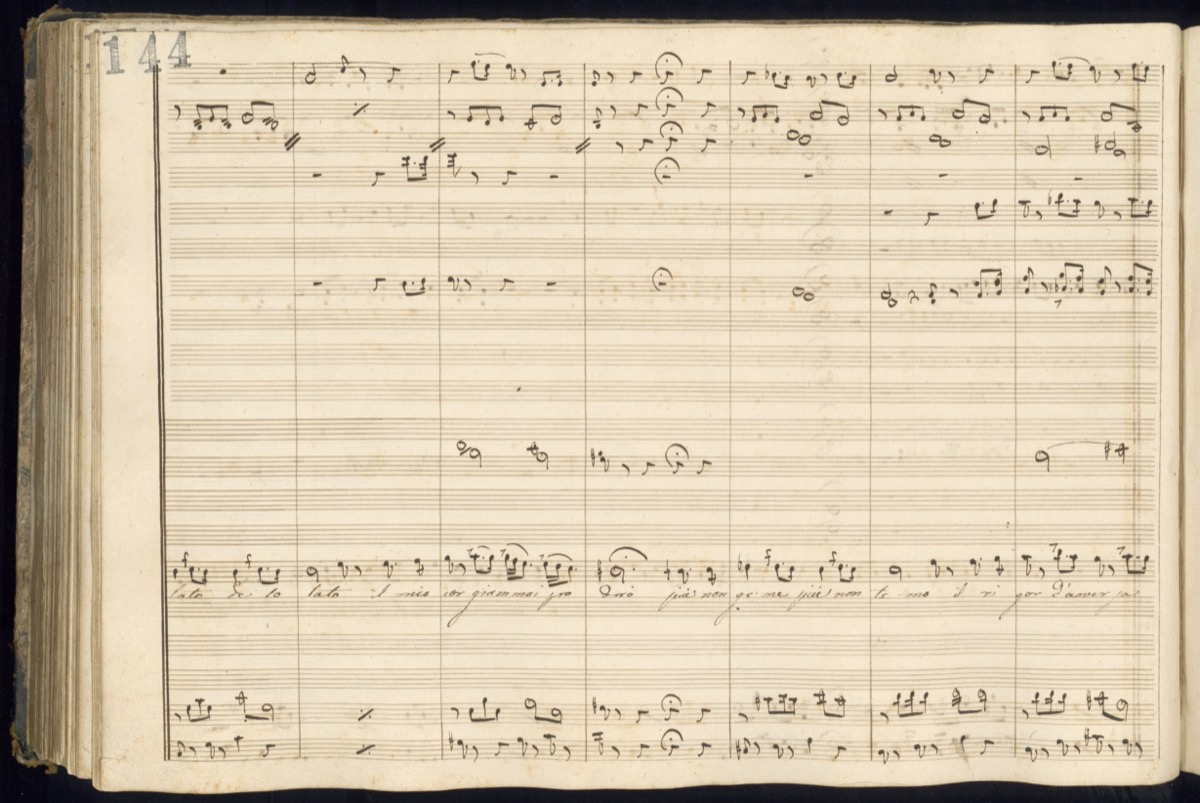 144
lato de so lato il mio cor giammai pro drò più non ge me più non te mo il ri gor d'aver sa